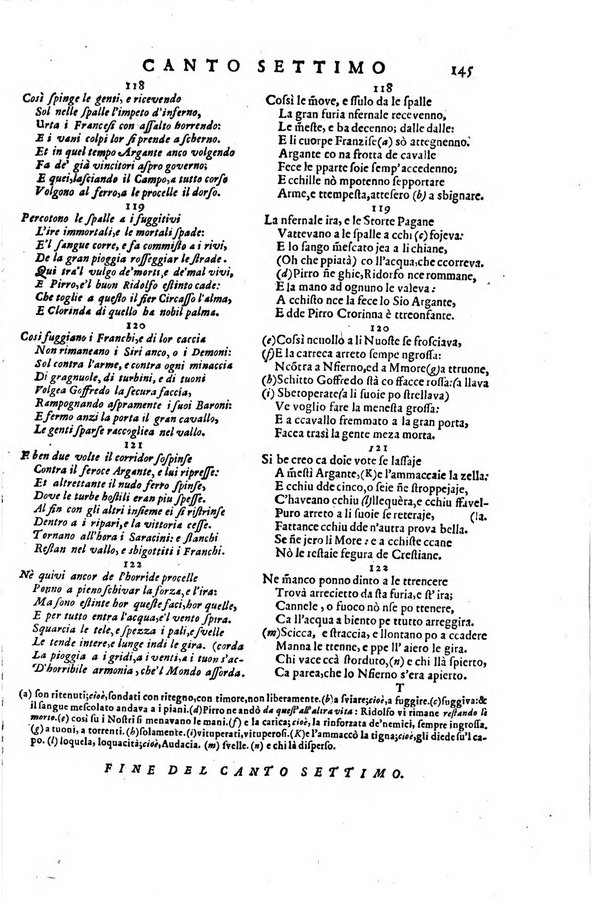 CANTO SETTIMO 145
118
Così ſpinge le genti, e ricevendo
Sol nelle ſpalle l'impeto d'inferno,
Urta i Franceſi con aſſalto horrendo:
E i vani colpi lor ſi prende a ſcherno.
Et in quel tempo Argante anco volgendo
Fa de' già vincitori aſpro governo;
E queſti, laſciando il Campo, a tutto corſo
Volgono al ferro, a le procelle il dorſo.
119
Percotono le ſpalle a i fuggitivi
L'ire immortali, e le mortali ſpade:
E'l ſangue corre, e fa commiſto a i rivi,
De la gran pioggia roſſeggiar le ſtrade.
Qui tra'l vulgo de'morti, e de'mal vivi,
E Pirro, e'l buon Ridolfo eſtinto cade:
Che toglie a queſto il fier Circaſſo l'alma,
E Clorinda di quello ha nobil palma.
120
Così fuggiano i Franchi, e di lor caccia
Non rimaneano i Siri anco, o i Demoni:
Sol contra l'arme, e contra ogni minaccia
Di gragnuole, di turbini, e di tuoni
Volgea Goffredo la ſecura faccia,
Rampognando aſpramente i ſuoi Baroni:
E fermo anzi la porta il gran cavallo,
Le genti ſparſe raccogliea nel vallo.
121
E ben due volte il corridor ſoſpinſe
Contra il feroce Argante, e lui ripreſſe:
Et altrettante il nudo ferro ſpinſe,
Dove le turbe hoſtili eran piu ſpeſſe.
Al fin con gli altri inſieme ei ſi riſtrinſe
Dentro a i ripari, e la vittoria ceſſe.
Tornano all'hora i Saracini: e ſtanchi
Reſtan nel vallo, e sbigottiti i Franchi.
122
Nè quivi ancor de l'horride procelle
Ponno a pieno ſchivar la forza, e l'ira:
Ma ſono eſtinte hor queſte faci, hor quelle,
E per tutto entra l'acqua, e'l vento ſpira.
Squarcia le tele, e ſpezza i pali, e ſvelle
Le tende intere, e lunge indi le gira. (corda
La pioggia a i gridi, a i venti, a i tuon s'ac-
D'horribile armonia, che'l Mondo aſſorda.
118
Coſsì le mōve, e ſſulo da le ſpalle
La gran furia nfernale recevenno,
Le mēſte, e ba decenno; dalle dalle:
E li cuorpe Franziſe(a) sò attegnenno.
Argante co na frotta de cavalle
Fece le pparte ſoie ſemp'accedenno;
E cchille nò mpotenno ſepportare
Arme, e ttempeſta, atteſero (b) a sbignare.
119
La nfernale ira, e le Storte Pagane
Vattevano a le ſpalle a cchi (c)fojeva:
E lo ſango meſcato jea a li chiane,
(Oh che ppiatà) co ll'acqua, che ccorreva.
(d)Pirro ñe ghie, Ridorfo nce rommane,
E la mano ad ognuno le valeva:
A cchiſta nce la fece lo Sio Argante,
E dde Pirro Crorinna è ttreonfante.
120
(e)Coſsì ncuollò a li Nuoſte ſe froſciava,
(f)E la carreca arreto ſempe ngroſſa:
Ncōtra a Nfierno, ed a Mmore(g)a ttruone,
(h)Schitto Goffredo ſtà co ffacce roſſa:(a llava
(i) Sbetoperate(a li ſuoie po ſtrellava)
Ve voglio fare la meneſta groſſa:
E a ccavallo fremmato a la gran porta,
Facea traſì la gente meza morta.
121
Si be creo ca doie vote ſe laſſaje
A mēſtì Argante, (K)e l'ammaccaie la zella:
E cchiu dde cinco, o ſeie ñe ſtroppejaje,
C'haveano cchiu (l)llequèra, e cchiu ffavel-
Puro arreto a li ſuoie ſe reteraje, (la.
Fattance cchiu dde n'autra prova bella.
Se ñe jero li More: e a cchiſte ccane
Nò le reſtaie fegura de Creſtiane.
122
Ne māneo ponno dinto a le ttrencere
Trovà arreciettо da ſta furia, e ſt'ira:
Cannele, o fuoco nō nſo po ttenere,
Ca ll'acqua a biento pe ttutto arreggira.
(m)Scicca, e ſtraccia, e llontano po a ccadere
Manna le ttenne, e ppe ll'aiero le gira.
Chi vace ccà ſtorduto, (n) e chi llà ſpierto,
Ca parea, che lo Nfierno s'era apierto.
T
(a) ſon ritenuti; cioè, ſondati con ritegno, con timore, non liberamente. (b) a ſviare; cioè, a fuggire. (c) fuggiva: &
il ſangue meſcolato andava a i piani. (d) Pirro ne andò da queſt'all'altra vita: Ridolfo vi rimane reſtando ſe
morto. (e) così ſu i Noſtri ſi menavano le mani. (f) e la carica; cioè, la rinforzata de'nemici, ſempre ingroſſa.
(g) a tuoni, a torrenti. (h) ſolamente. (i) vituperati, vituperoſi. (K) e l'ammaccò la tigna; cioè, gli diede ſu'l ca-
po. (l) loquela, loquacità; cioè, Audacia. (m) ſvelle. (n) e chi là diſperſo.
FINE DEL CANTO SETTIMO.